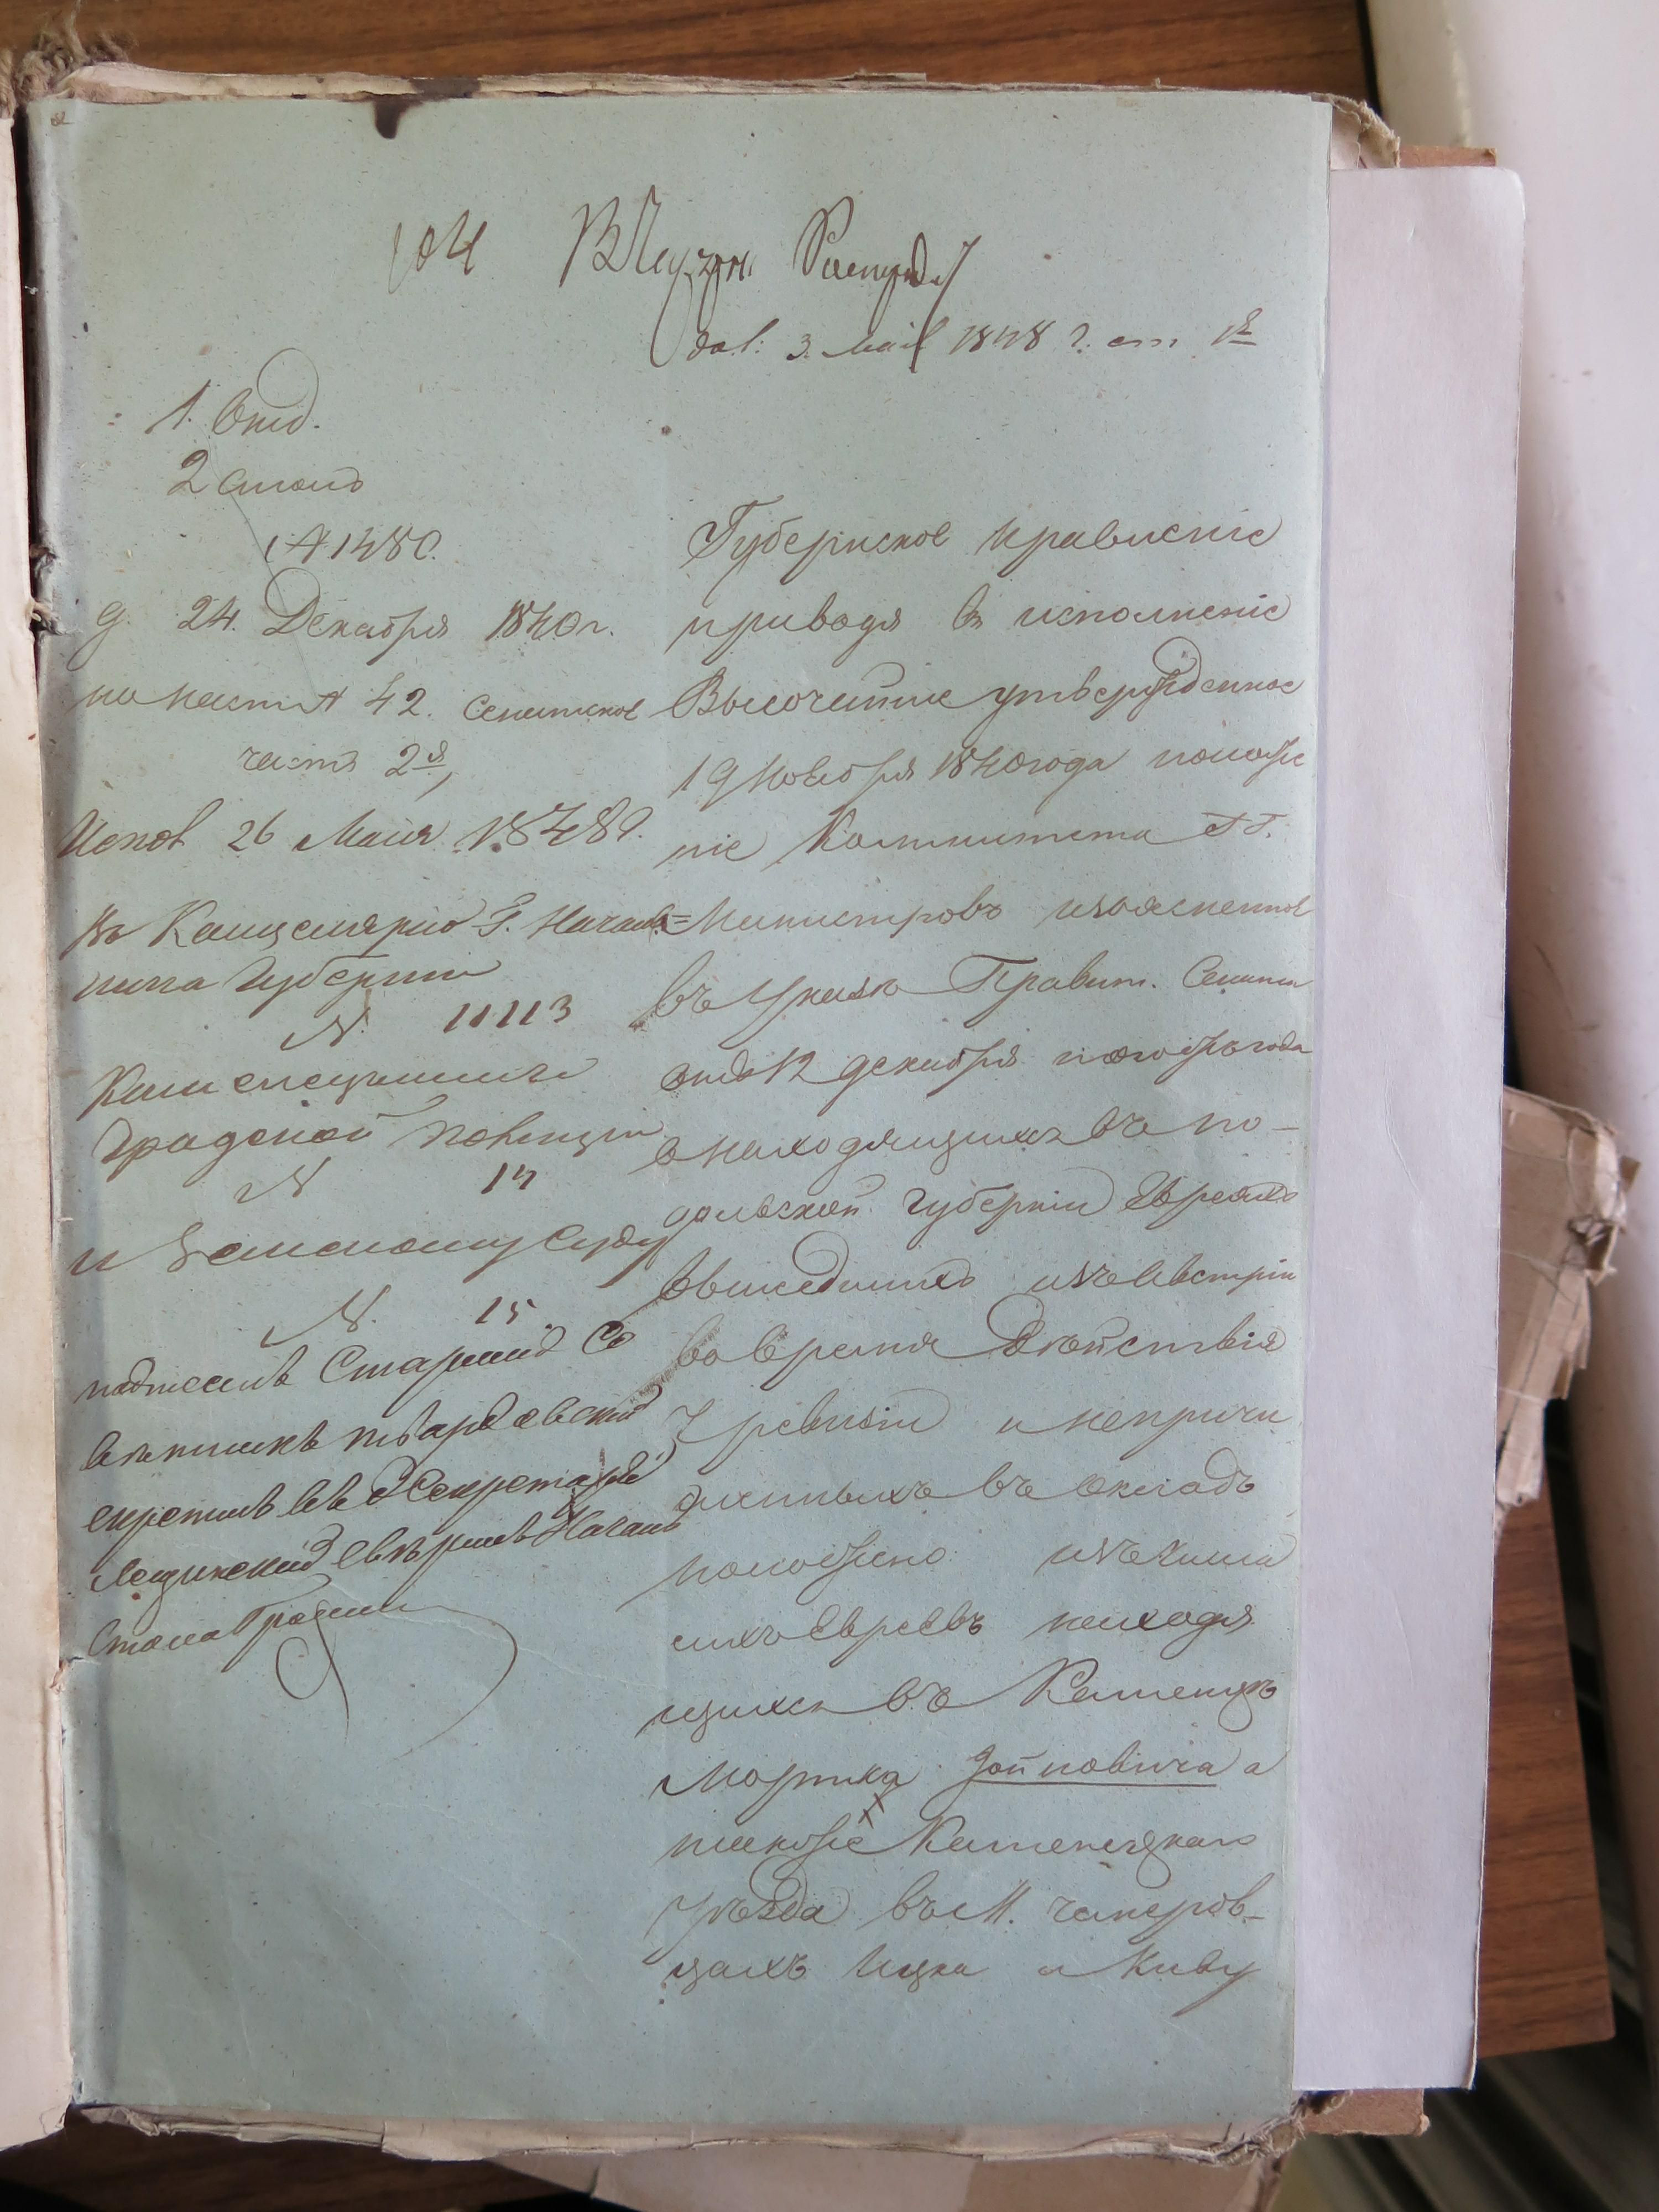 1. Отд.
2 столъ
№ 1480.
д. 24. Декабря 1840 г.
по наст № 42. Сенатской
часть 2я,
Испол 26 Маія 1848 г.
Въ Канцелярію Г. Началь=
ника Губерніи
№. 11113
Градской Полиціи
№ 14
и Земскому Суду
№. 15.
подписалъ Старшій Со
вѣтникъ Твардовскій
Секретарь
свѣрялъ Началь
Стола
3. Маія 1848 г. ст.
Губернское правленіе
приводя въ исполненіе
Высочайше утвержденное
19 Ноября 1840 года положе
ніе Коммитета ГГ.
Министровъ изъясненное
въ Указѣ Правит. Сената
отъ 12 декабря того же года
о находящихся въ По-
дольской Губерніи Евреяхъ
вышедшихъ изъ Австріи
во время дѣйствія
7 ревизіи и непричи
сленныхъ въ окладъ
положено: изъ числа
сихъ Евреевъ находя
щихся въ Каменцѣ
Мортка Зойновича а
также Каменецкаго
уѣзда въ М. Чемеров-
цахъ Ицка и Киву